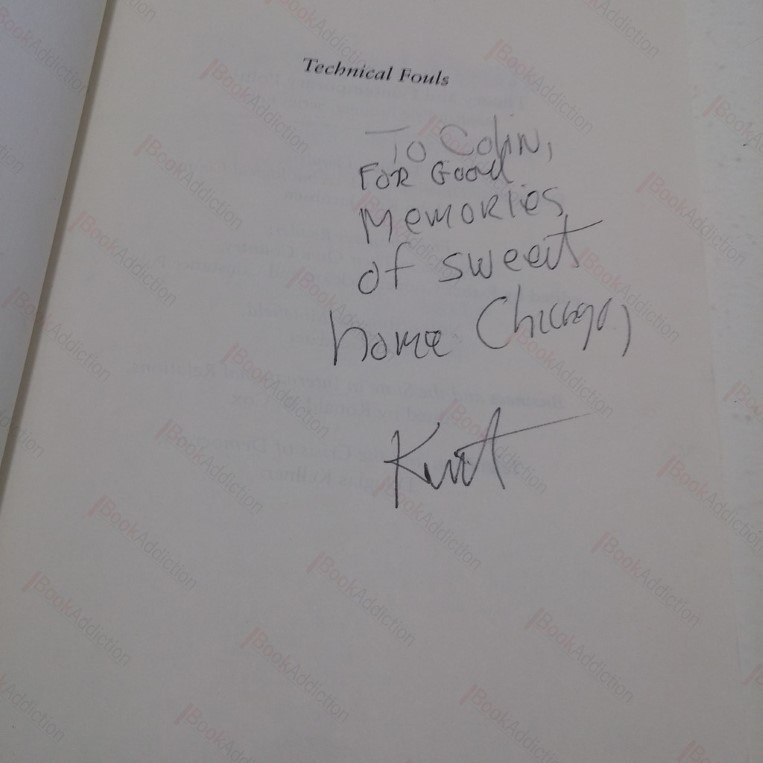 Technical Fouls
To Colin,
FOR GOOD
MEMORIES
of sweet
home Chicago,
Kurt
BookAddiction